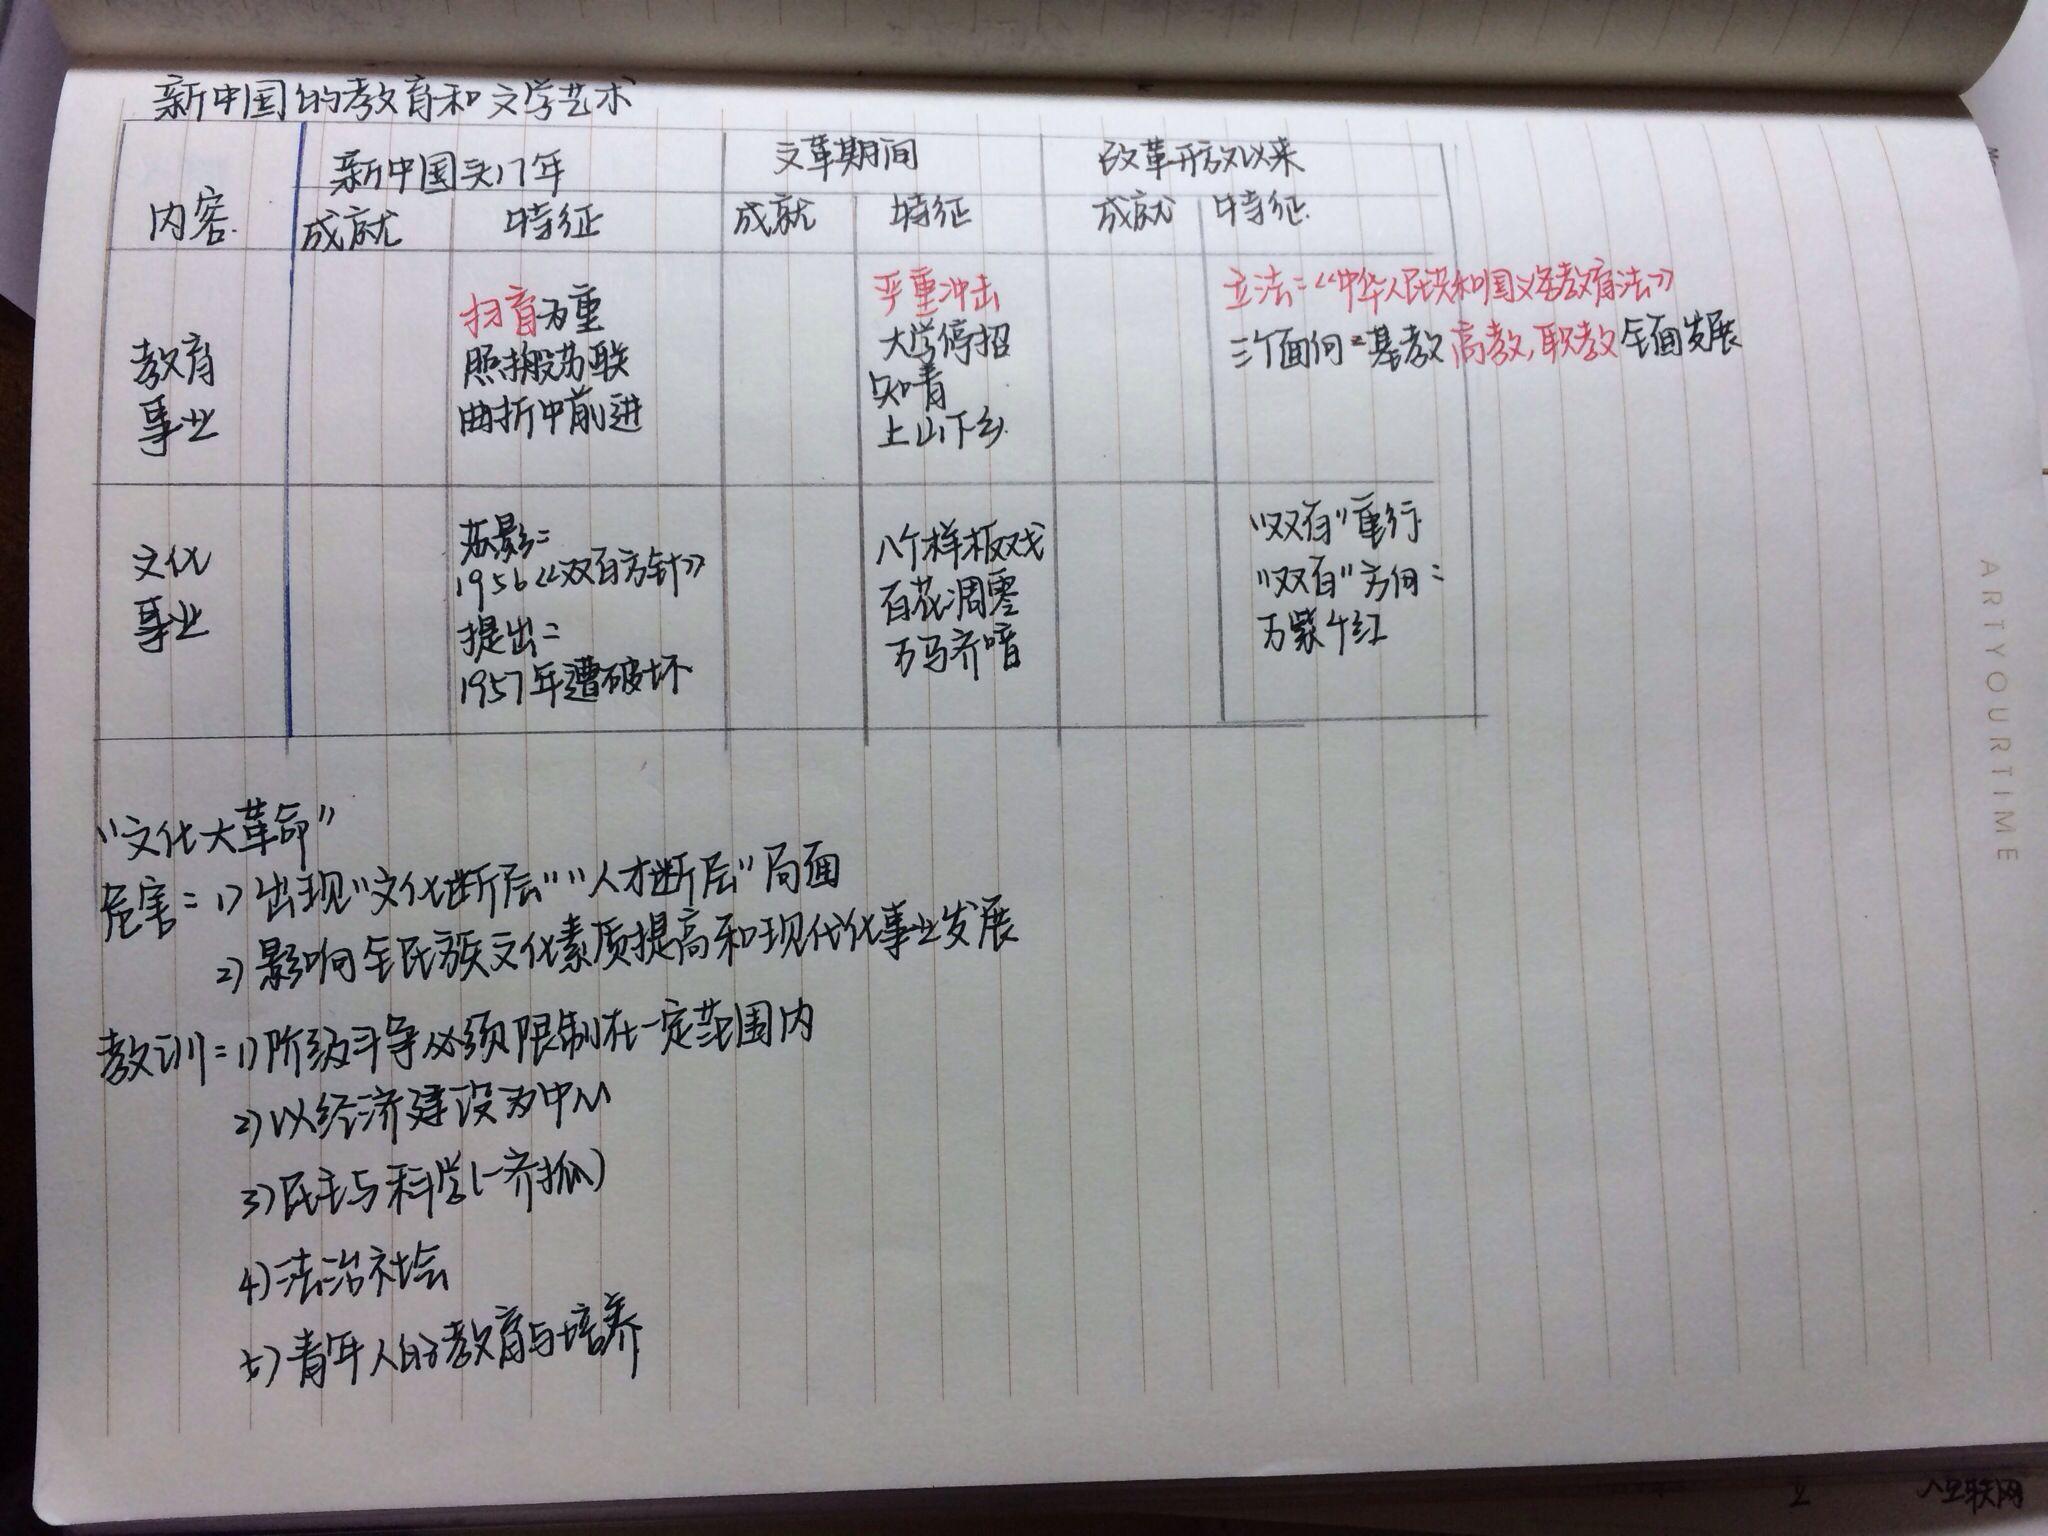 新中国的教育和文学艺术
内容
新中国头17年
文革期间
改革开放以来
成就
特征
成就
特征
成就
特征
教育
事业
扫盲为重
照搬苏联
曲折中前进
严重冲击
大学停招
知青
上山下乡
立法=《中华人民共和国义务教育法》
三个面向=基教 高教,职教 全面发展
文化
事业
苏影=
1956《双百方针》
提出=
1957年遭破坏
八个样板戏
百花凋零
万马齐喑
"双百"重行
"双百"方向=
万紫千红
"文化大革命"
危害=1)出现"文化断层""人才断层"局面
2)影响全民族文化素质提高和现代化事业发展
教训=1)阶级斗争必须限制在一定范围内
2)以经济建设为中心
3)民主与科学(一齐抓)
4)法治社会
5)青年人的教育与培养
ARTYOURTIME
互联网